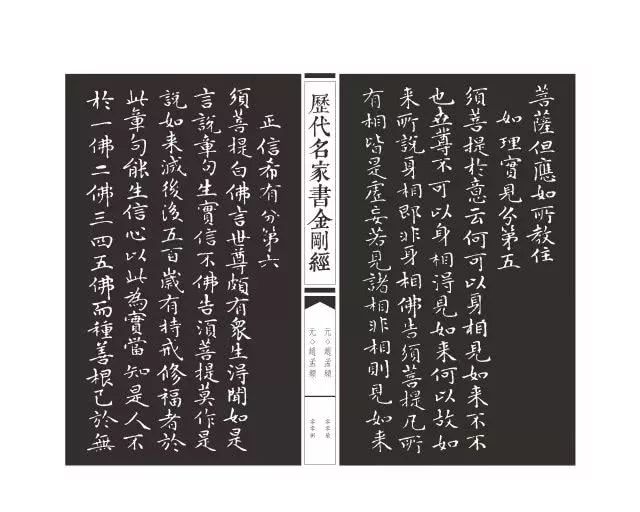 菩薩但應如所教住
如理實見分第五
須菩提於意云何可以身相見如来不不
也世尊不可以身相得見如来何以故如
来所說身相即非身相佛告須菩提凡所
有相皆是虛妄若見諸相非相則見如来
歷代名家書金剛經
元◇趙孟頫
元◇趙孟頫
正信希有分第六
須菩提白佛言世尊頗有衆生得聞如是
言說章句生實信不佛告須菩提莫作是
說如来滅後後五百歲有持戒修福者於
此章句能生信心以此為實當知是人不
於一佛二佛三四五佛而種善根已於無